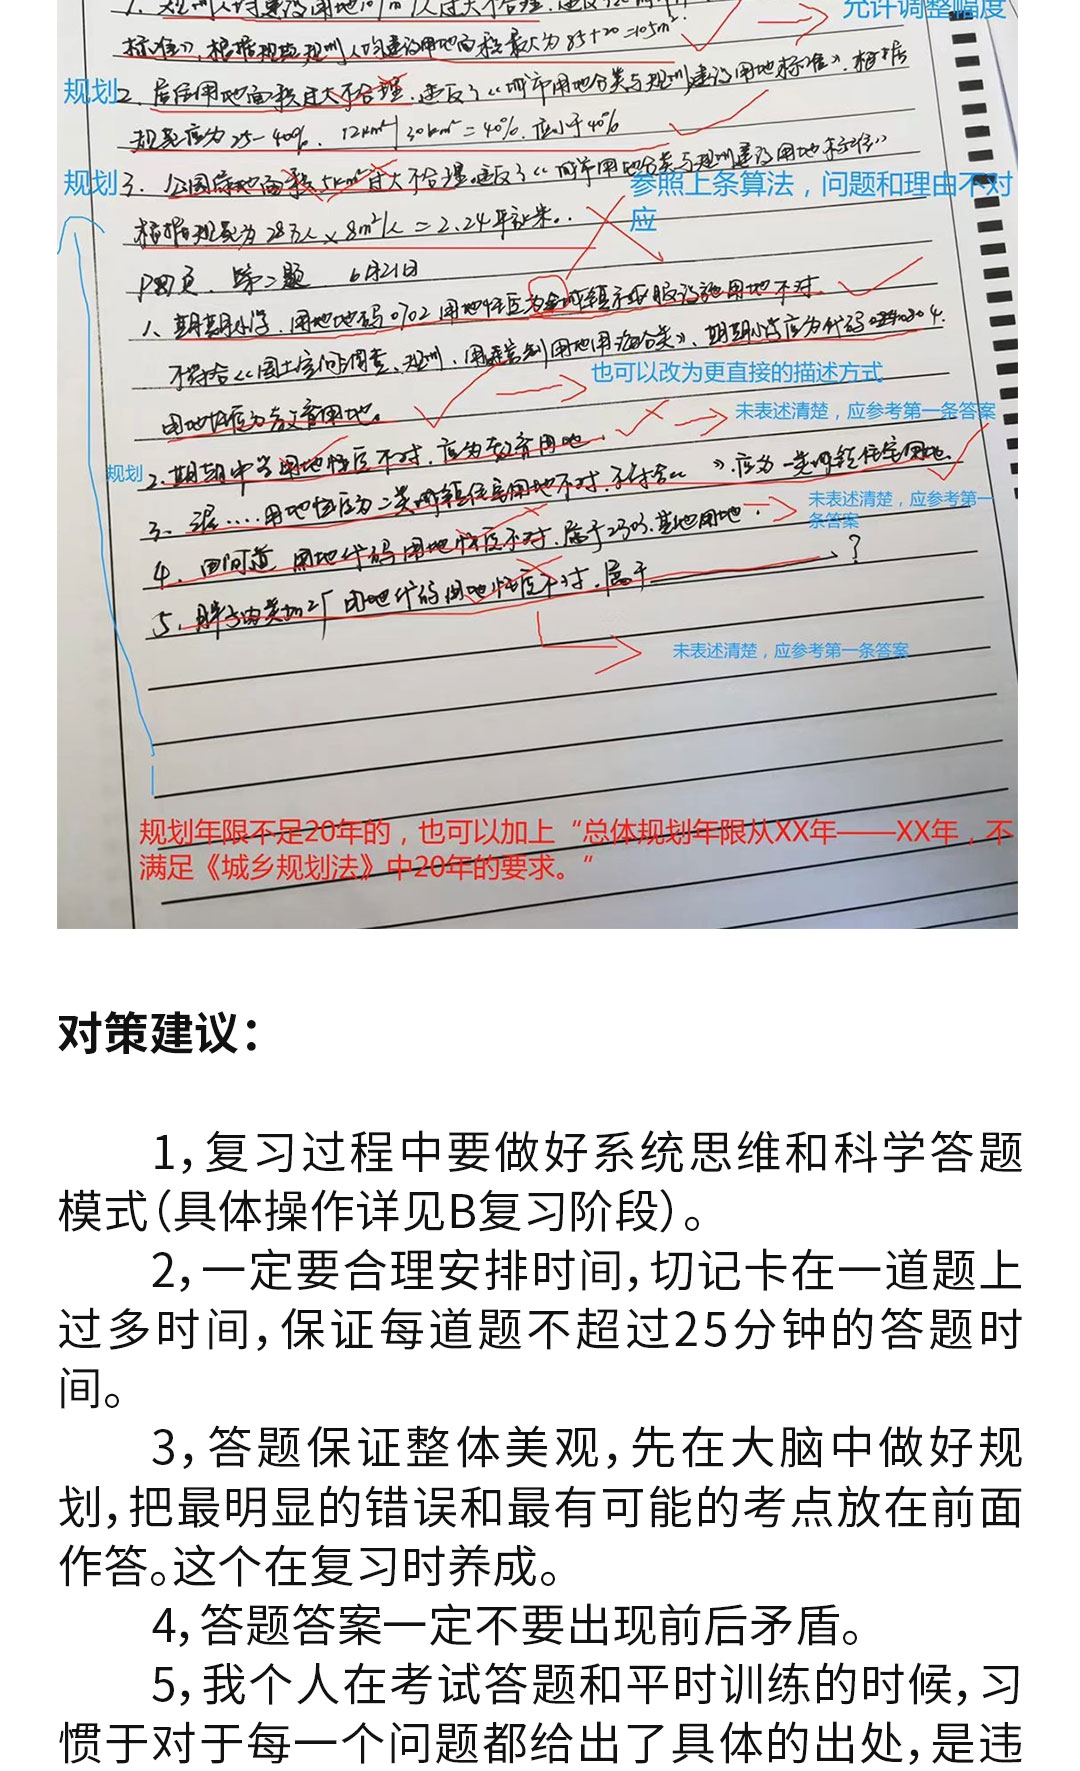 允许调整幅度
标准》，根据现状规划人均建设用地面积最大为85+20=105m²
规划2、居住用地面积过大不合理，违反了《城市用地分类与规划建设用地标准》，根据
规范应为25-40%，12km²/30km²=40%，应小于40%
规划3、公园绿地面积5km²过大不合理，违反了《城市用地分类与规划建设用地标准》
参照上条算法，问题和理由不对
应
根据规范为28万人×8m²/人=2.24平方米。
第二题 6月21日
1、期期小学，用地地码0702用地性质为 城镇 服设施用地不对，
不符合《国土空间调查、规划、用途管制用地用海分类》，期期小学应为代码 0804.
用地性质为教育用地。
也可以改为更直接的描述方式
未表述清楚，应参考第一条答案
规划2、期期中学用地性质不对，应为教育用地.
3、……用地性质为二类城镇住宅用地不对，不符合《 》，应为一类城镇住宅用地、
未表述清楚，应参考第一
条答案
4、 用地代码用地性质不对，属于 用地.
5、 用地代码用地性质不对，属于 ？
未表述清楚，应参考第一条答案
规划年限不足20年的，也可以加上“总体规划年限从XX年——XX年，不
满足《城乡规划法》中20年的要求。“
对策建议：
1，复习过程中要做好系统思维和科学答题
模式（具体操作详见B复习阶段）。
2，一定要合理安排时间，切记卡在一道题上
过多时间，保证每道题不超过25分钟的答题时
间。
3，答题保证整体美观，先在大脑中做好规
划，把最明显的错误和最有可能的考点放在前面
作答。这个在复习时养成。
4，答题答案一定不要出现前后矛盾。
5，我个人在考试答题和平时训练的时候，习
惯于对于每一个问题都给出了具体的出处，是违